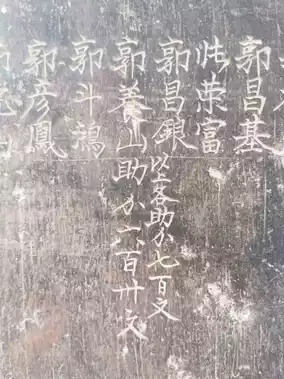 郭昌基
荣富
郭昌銀以上各助七百文
郭養山助六百卅文
郭斗
郭彦鳳